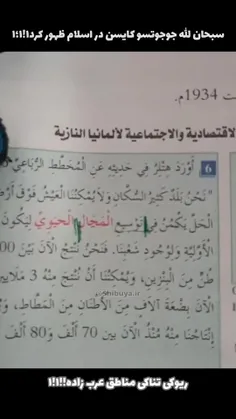 سبحان لله جوجوتسو کایسن در اسلام ظهور کرد!۱!؛!۱
ت 1934م.
لاقتصادية والاجتماعية لألمانيا النازية
6 أَوْرَدَ هِتْلَر فِي حَدِيثِهِ عَنِ الْمُخَطَّطِ الرُّبَاعِيِّ
"نَحْنُ بَلَدٌ كَثِيرُ السُّكَّانِ وَلَا يُمْكِنُنَا الْعَيْشُ فَوْقَ
الْحَلُّ يَكْمُنُ فِي تَوْسِيعِ الْمَجَالِ الْحَيَوِيِّ لِيَكُونَ
الْأَوَّلِيَّةِ وَلِوُجُودِ شَعْبِنَا. فَنَحْنُ نُنْتِجُ الْآنَ بَيْنَ
طُنٍّ مِنَ الْبَنْزِينِ، وَيُمْكِنُنَا أَنْ نُنْتِجَ مِنْهُ 3 مَلَايِين
الْآنَ بِضْعَةَ آلَافٍ مِنَ الْأَطْنَانِ مِنَ الْمَطَّاطِ، وَ
إِنْتَاجُنَا مِنْهُ مُنْذُ الْآنَ بين 70 أَلْفَ وَ80 أَلْفَ
ریوکی تناکی مناطق عرب زاده!!!۱!۱